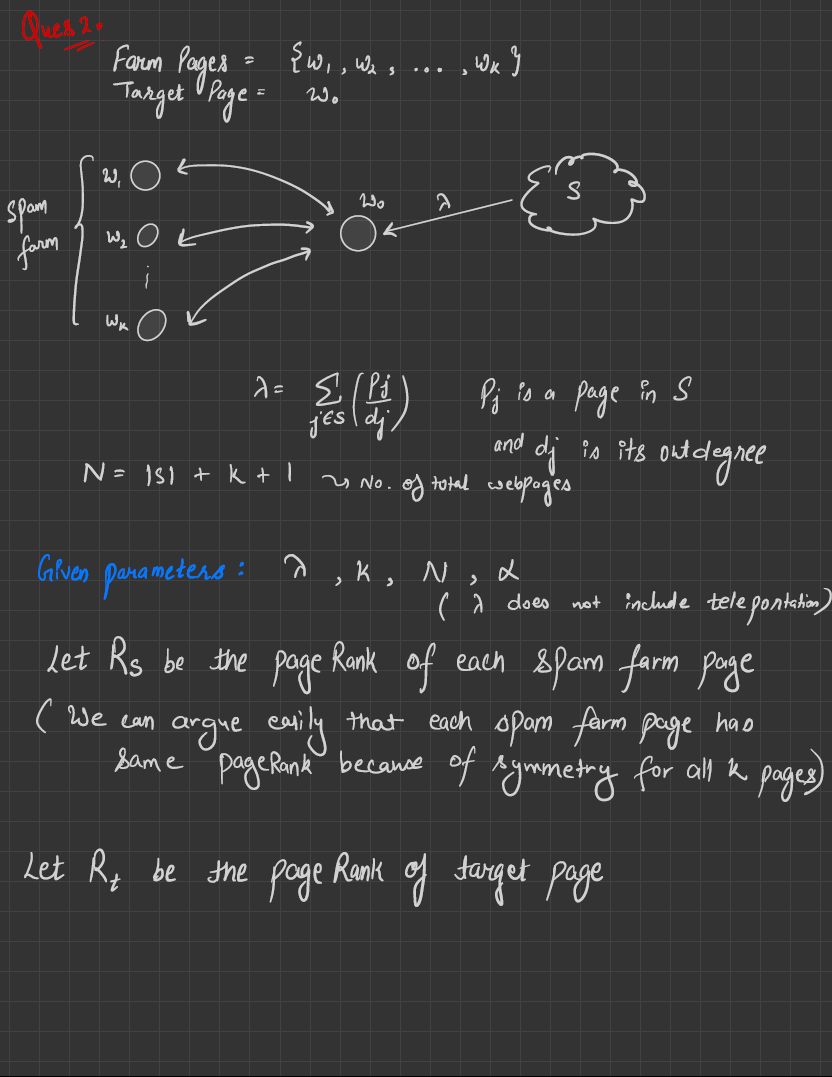 Ques 2.
Farm Pages = {w₁, w₂, ..., wₖ}
Target Page = w₀
w₁
w₀
λ
S
spam
farm
w₂
wₖ
λ = Σ j∈S (Pj / dj)
Pj is a page in S
and dj is its outdegree
N = |S| + k + 1 ⤳ No. of total webpages
Given parameters: λ, k, N, α
(λ does not include teleportation)
Let Rs be the pageRank of each spam farm page
(We can argue easily that each spam farm page has
same pageRank because of symmetry for all k pages)
Let Rt be the pageRank of target page